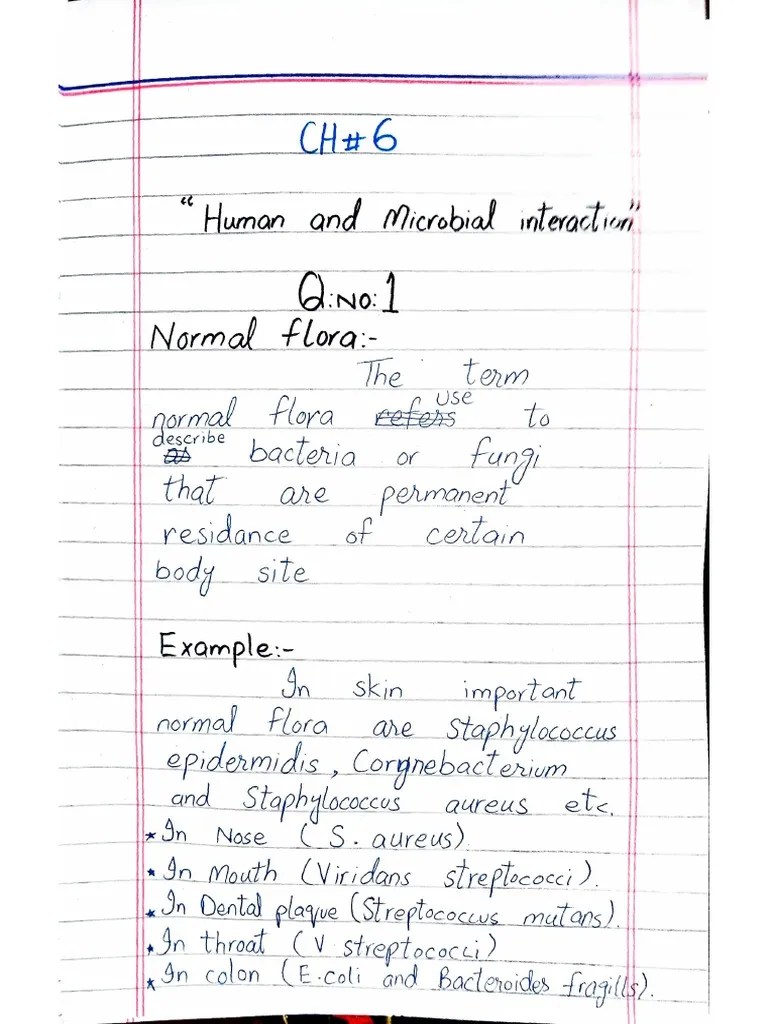 CH# 6
"Human and Microbial interaction"
Q:No:1
Normal flora:-
The term
normal flora refers use to
describe as bacteria or fungi
that are permanent
residance of certain
body site
Example:-
In skin important
normal flora are Staphylococcus
epidermidis, Corynebacterium
and Staphylococcus aureus etc.
* In Nose (S. aureus)
* In Mouth (Viridans streptococci).
* In Dental plaque (Streptococcus mutans).
* In throat (V streptococci)
* In colon (E.coli and Bacteroides fragills).